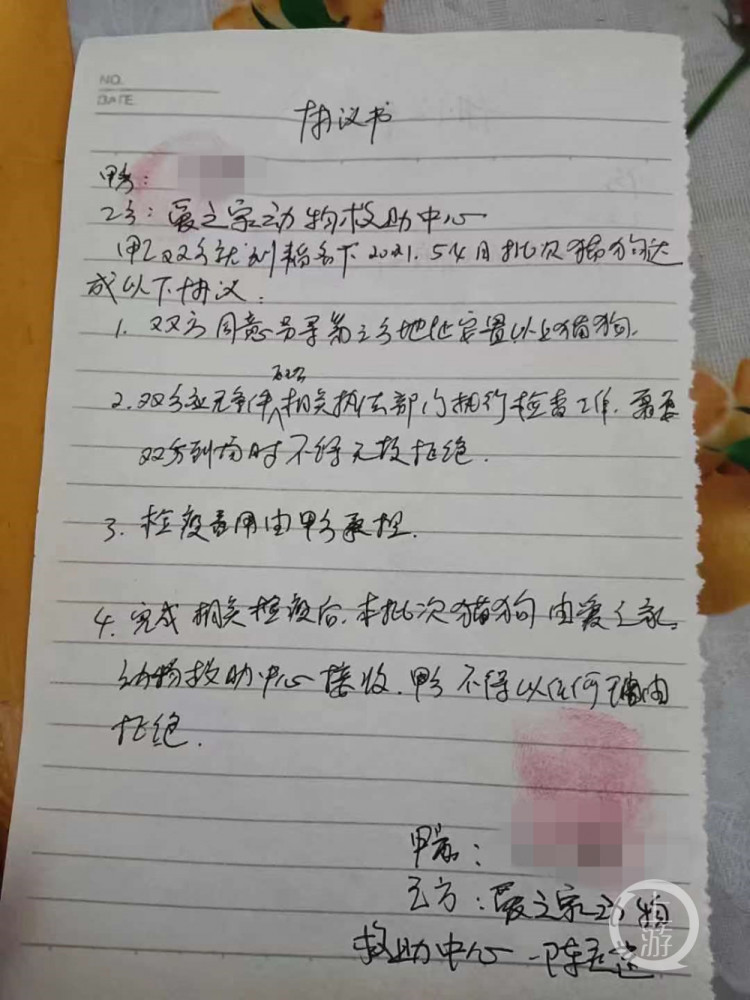 NO.
DATE
协议书
甲方:
乙方:爱之家动物救助中心
甲乙双方就刘 名下2021.5.4日批次猫狗达
成以下协议:
1. 双方同意另寻第三方地址安置以上猫狗.
配合
2. 双方应无条件相关执法部门执行检查工作.需要
双方到场时不得无故拒绝.
3. 检疫费用由甲方承担.
4. 完成相关检疫后.本批次猫狗由爱之家
动物救助中心接收.甲方不得以任何理由
拒绝.
甲方:
乙方:爱之家动物
救助中心 陈
上游